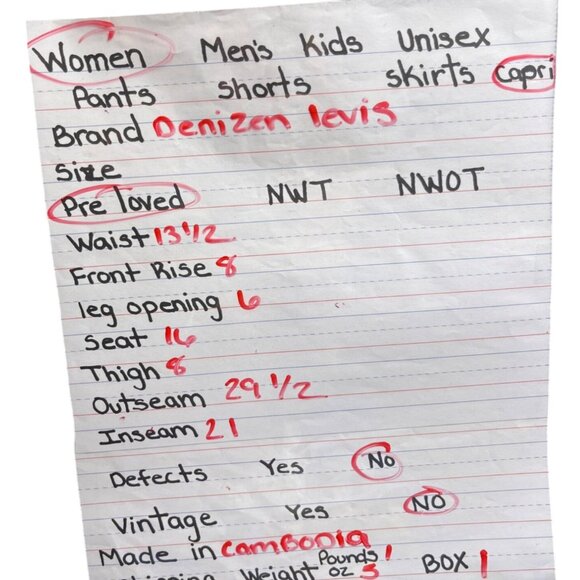 Women Men's Kids Unisex
Pants Shorts Skirts Capri
Brand Denizen levis
Size
Pre loved NWT NWOT
Waist 13 1/2
Front Rise 8
leg opening 6
Seat 16
Thigh 8
Outseam 29 1/2
Inseam 21
Defects Yes No
Vintage Yes No
Made in Cambodia
Weight Pounds 1 oz 5 BOX 1